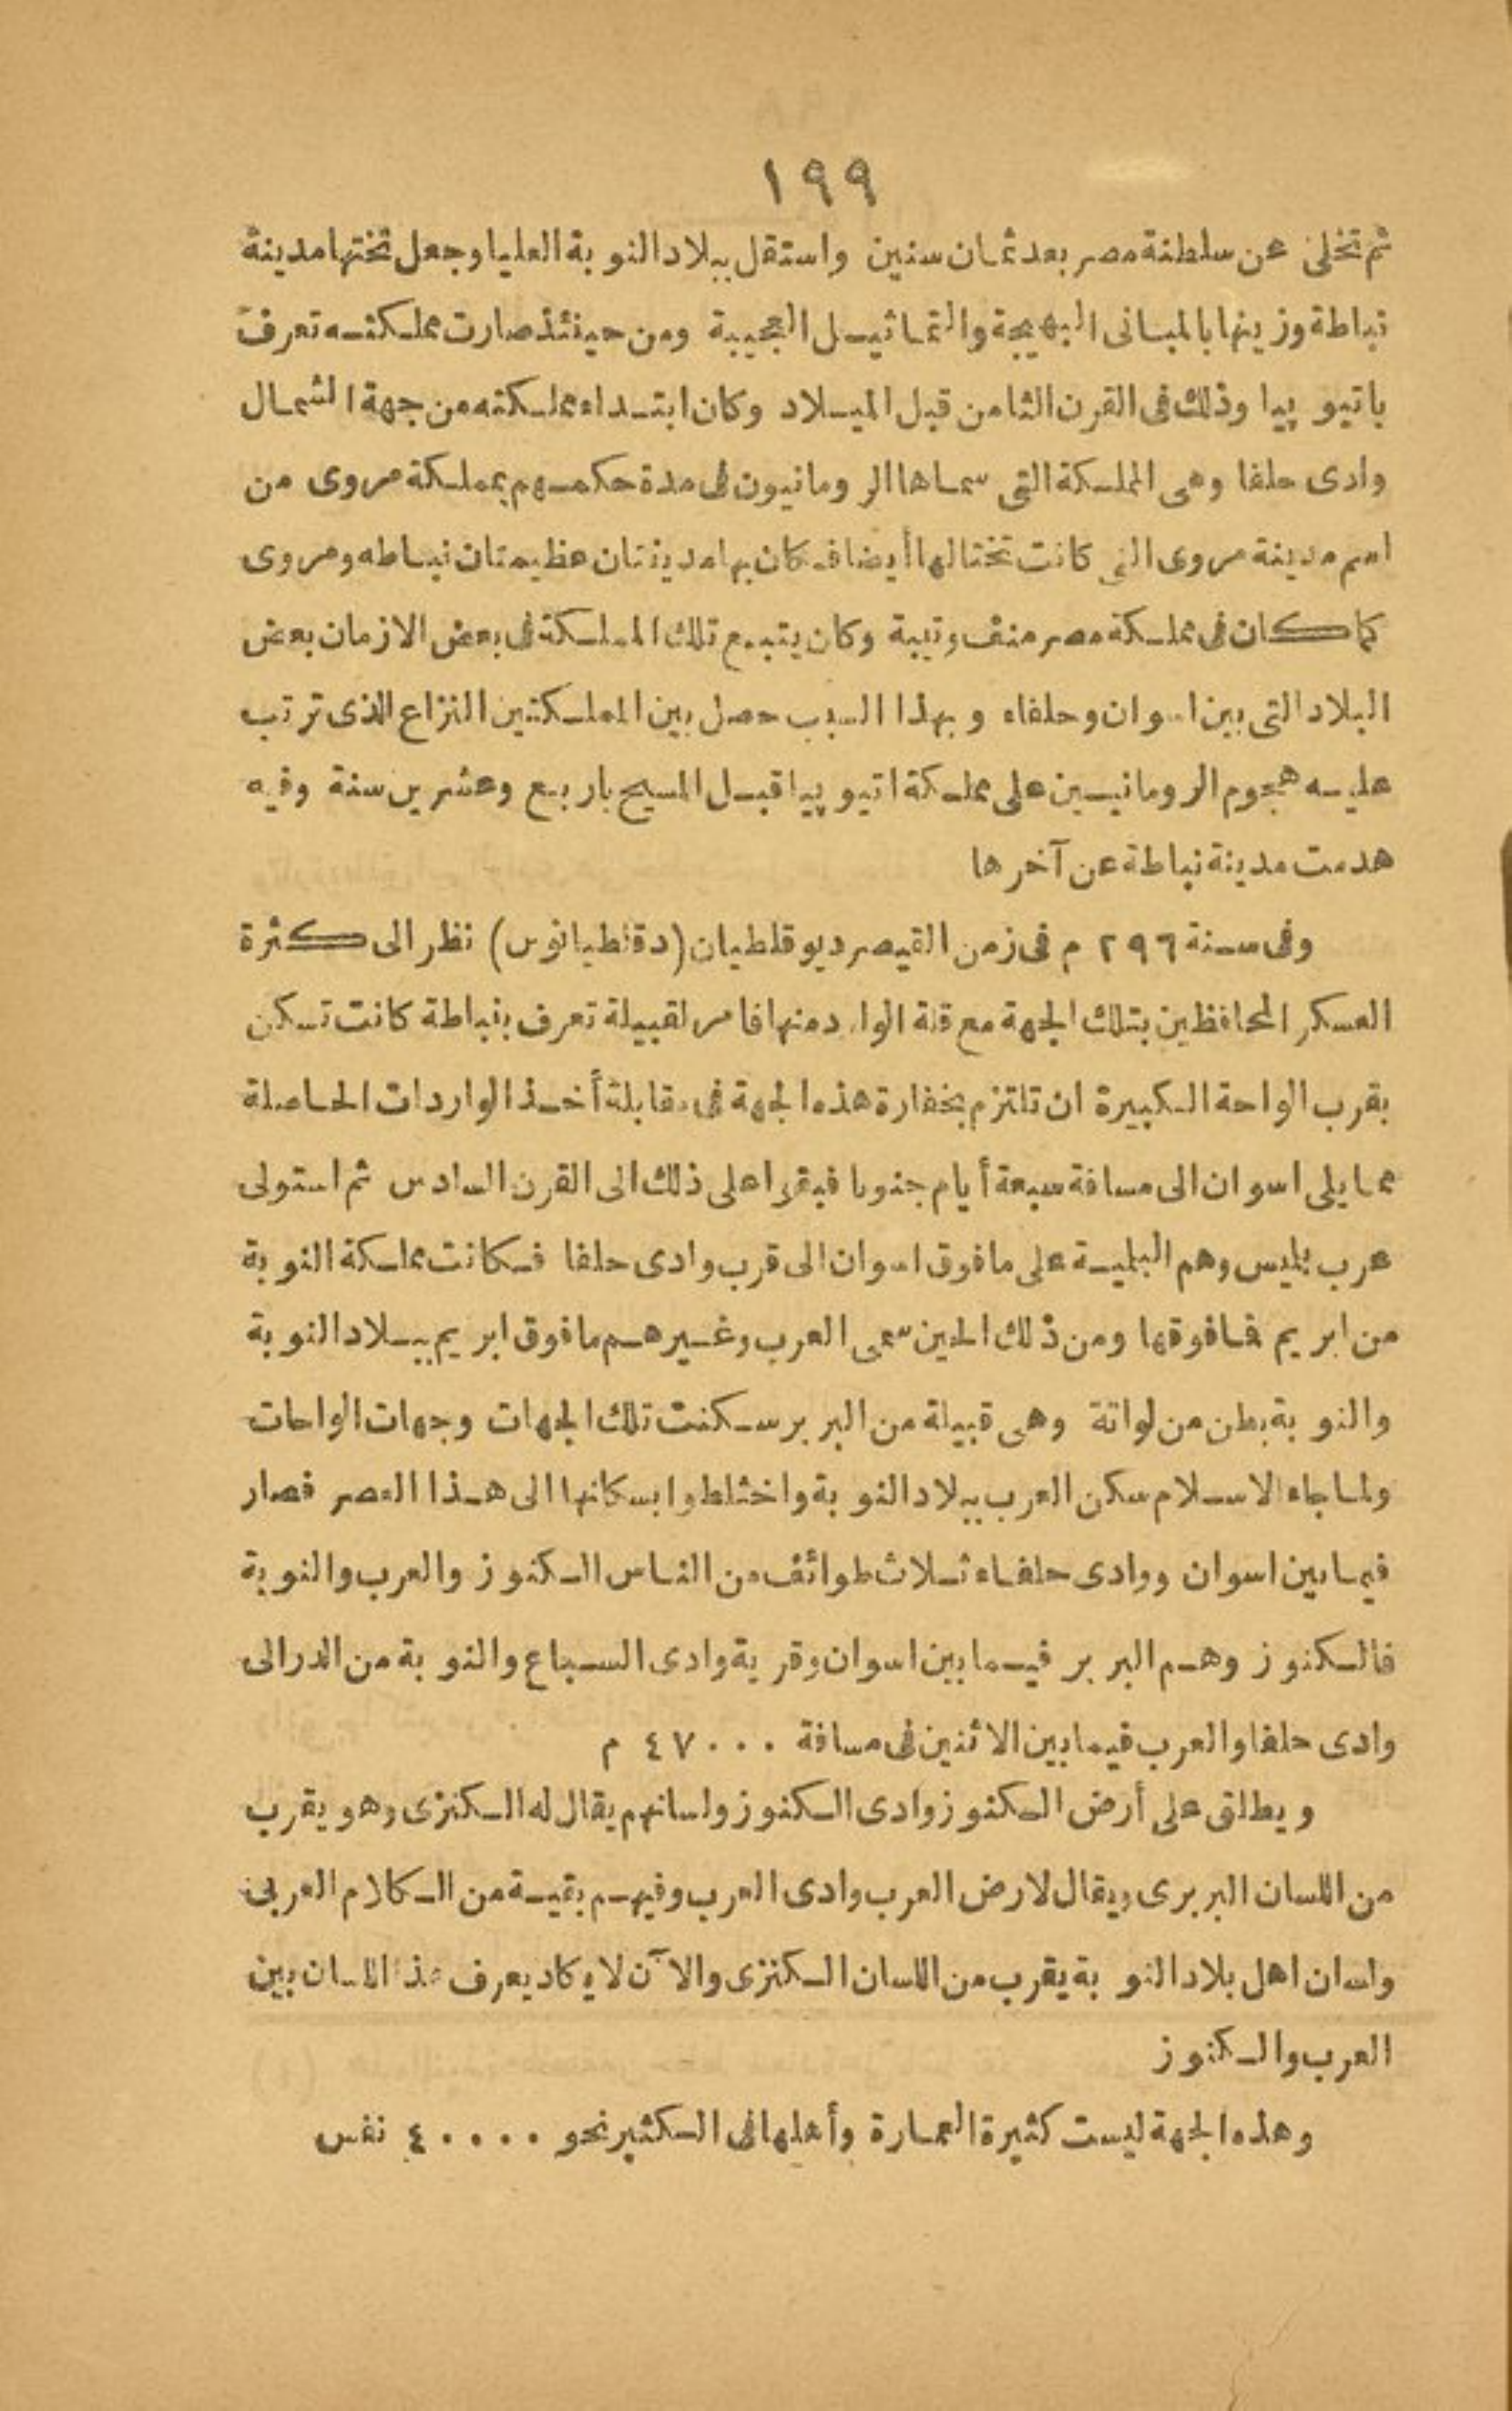 ١٩٩
ثم تخلى عن سلطنة مصر بعد ثمان سنين واستقل ببلاد النوبة العليا وجعل تختها مدينة
نباطة وزينها بالمبانى البهيجة والتماثيل العجيبة ومن حينئذ صارت مملكته تعرف
باتيوپيا وذلك فى القرن الثامن قبل الميلاد وكان ابتداء مملكته من جهة الشمال
وادى حلفا وهى المملكة التى سماها الرومانيون فى مدة حكمهم بمملكة مروى من
اسم مدينة مروى التى كانت تختا لها أيضا فكان بها مدينتان عظيمتان نباطه ومروى
كما كان فى مملكة مصر منف وتيبة وكان يتبع تلك المملكة فى بعض الازمان بعض
البلاد التى بين اسوان وحلفاء وبهذا السبب حصل بين المملكتين النزاع الذى ترتب
عليه هجوم الرومانيين على مملكة اتيوپيا قبل المسيح باربع وعشرين سنة وفيه
هدمت مدينة نباطة عن آخرها
وفى سنة ٢٩٦ م فى زمن القيصر ديوقلطيان (دقلطيانوس) نظر الى كثرة
العسكر المحافظين بتلك الجهة مع قلة الوارد منها فامر لقبيلة تعرف بنباطة كانت تسكن
بقرب الواحة الكبيرة ان تلتزم بخفارة هذه الجهة فى مقابلة أخذ الواردات الحاصلة
مما يلى اسوان الى مسافة سبعة أيام جنوبا فبقوا على ذلك الى القرن السادس ثم استولى
عرب بليس وهم البلمية على ما فوق اسوان الى قرب وادى حلفا فكانت مملكة النوبة
من ابريم فما فوقها ومن ذلك الحين سمى العرب وغيرهم ما فوق ابريم ببلاد النوبة
والنوبة بطن من لواتة وهى قبيلة من البربر سكنت تلك الجهات وجهات الواحات
ولما جاء الاسلام سكن العرب ببلاد النوبة واختلطوا بسكانها الى هذا العصر فصار
فيما بين اسوان ووادى حلفاء ثلاث طوائف من الناس الكنوز والعرب والنوبة
فالكنوز وهم البربر فيما بين اسوان وقرية وادى السباع والنوبة من الدر الى
وادى حلفا والعرب فيما بين الاثنين فى مسافة ٤٧٠٠٠ م
ويطلق على أرض الكنوز وادى الكنوز ولسانهم يقال له الكنزى وهو يقرب
من اللسان البربرى ويقال لارض العرب وادى العرب وفيهم بقية من الكلام العربى
ولسان اهل بلاد النوبة يقرب من اللسان الكنزى والآن لا يكاد يعرف هذا اللسان بين
العرب والكنوز
وهذه الجهة ليست كثيرة العمارة وأهلها فى الكثير نحو ٤٠٠٠٠ نفس